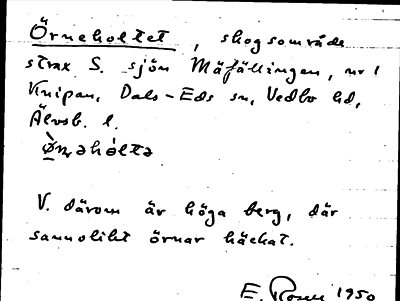 Örneholtet, skogsområde
strax S. sjön Mäfällingen, nr 1
Knipan, Dals-Eds sn, Vedbo hd,
Älvsb. l.
V. därom är höga berg, där
sannolikt örnar häckat.
E. Rosell 1950